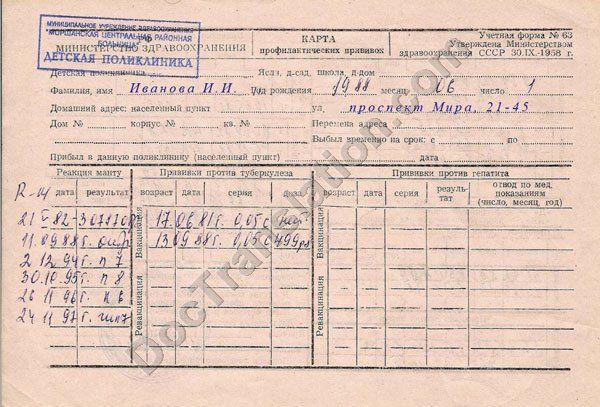 МУНИЦИПАЛЬНОЕ УЧРЕЖДЕНИЕ ЗДРАВООХРАНЕНИЯ
"МОРШАНСКАЯ ЦЕНТРАЛЬНАЯ РАЙОННАЯ
БОЛЬНИЦА"
ДЕТСКАЯ ПОЛИКЛИНИКА
МИНИСТЕРСТВО ЗДРАВООХРАНЕНИЯ
КАРТА
профилактических прививок
Учетная форма № 63
Утверждена Министерством
здравоохранения СССР 30.IX-1958 г.
Детская поликлиника Ясли, д-сад, школа, д-дом
Фамилия, имя Иванова И.И. Год рождения 1988 месяц 06 число 1
Домашний адрес: населенный пункт ул. проспект Мира, 21-45
Дом № корпус № кв. № Перемена адреса
Выбыл временно на срок: с по
Прибыл в данную поликлинику (населенный пункт) дата
Реакция манту Прививки против туберкулеза Прививки против гепатита
дата результат возраст дата серия доза возраст дата серия резуль-тат отвод по мед. показаниям (число, месяц, год)
Вакцинация Вакцинация
Ревакцинация Ревакцинация
11.09.88г.
13.09.88г. 0.05
2 12.94г. п 7
30.10.95г. п 8
26 11 96г.
24 11 97г.
DocTranslation.com